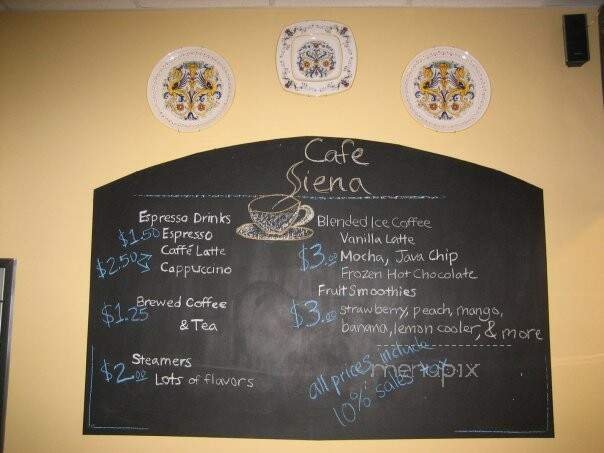 Cafe
Siena
Espresso Drinks
$1.50 Espresso
$2.50 Caffé Latte
Cappuccino
$1.25 Brewed Coffee
& Tea
Steamers
$2.00 Lots of flavors
Blended Ice Coffee
Vanilla Latte
$3.00 Mocha, Java Chip
Frozen Hot Chocolate
Fruit Smoothies
$3.00 strawberry, peach, mango,
banana, lemon cooler, & more
all prices include
10% sales tax
menupix